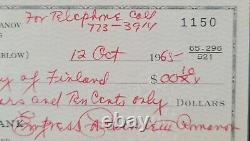 For Telephone Call
773-3914
1150
BELOW)
12 Oct 1965
65-296
521
y of Finland $00 10
ers and Ten Cents only DOLLARS
ANK
Empress